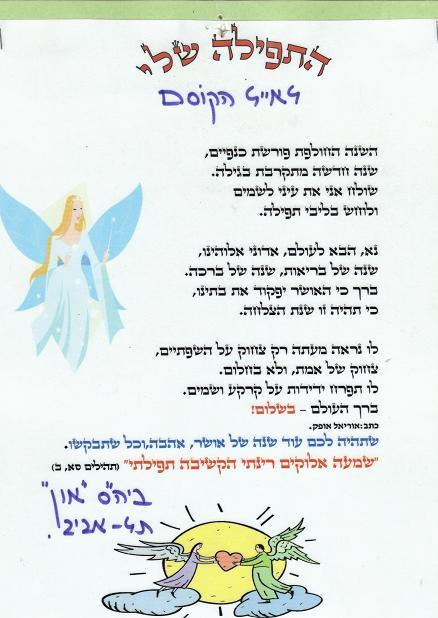 התפילה שלי
לאייל הקוסם
השנה החולפת פורשת כנפיים,
שנה חדשה מתקרבת בגילה.
שולח אני את עיני לשמים
ולוחש בליבי תפילה.
נא, הבא לעולם, אדוני אלוהינו,
שנה של בריאות, שנה של ברכה.
ברך כי האושר יפקוד את בתינו,
כי תהיה זו שנת הצלחה.
לו נראה מעתה רק צחוק על השפתיים,
צחוק של אמת, ולא בחלום.
לו תפרח ידידות על קרקע ושמים.
ברך העולם – בשלום!
כתב:אוריאל אופק.
שתהיה לכם עוד שנה של אושר, אהבה,וכל שתבקשו.
"שמעה אלוקים רינתי הקשיבה תפילתי" (תהילים סא, ב)
ביה"ס "און"
תל-אביב.